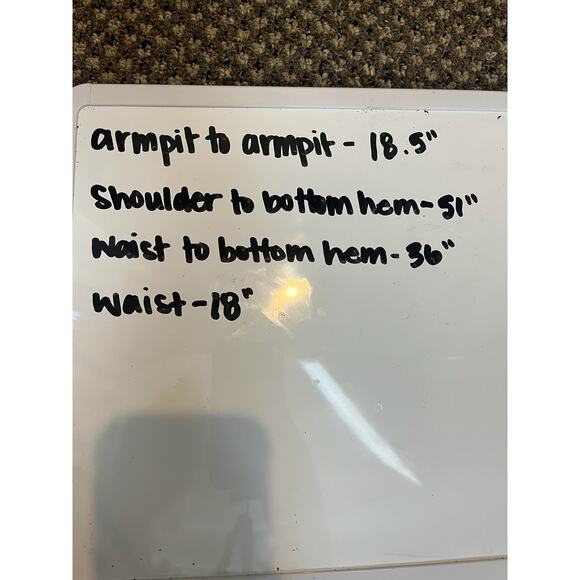 armpit to armpit - 18.5"
Shoulder to bottom hem - 51"
Waist to bottom hem - 36"
Waist - 18"